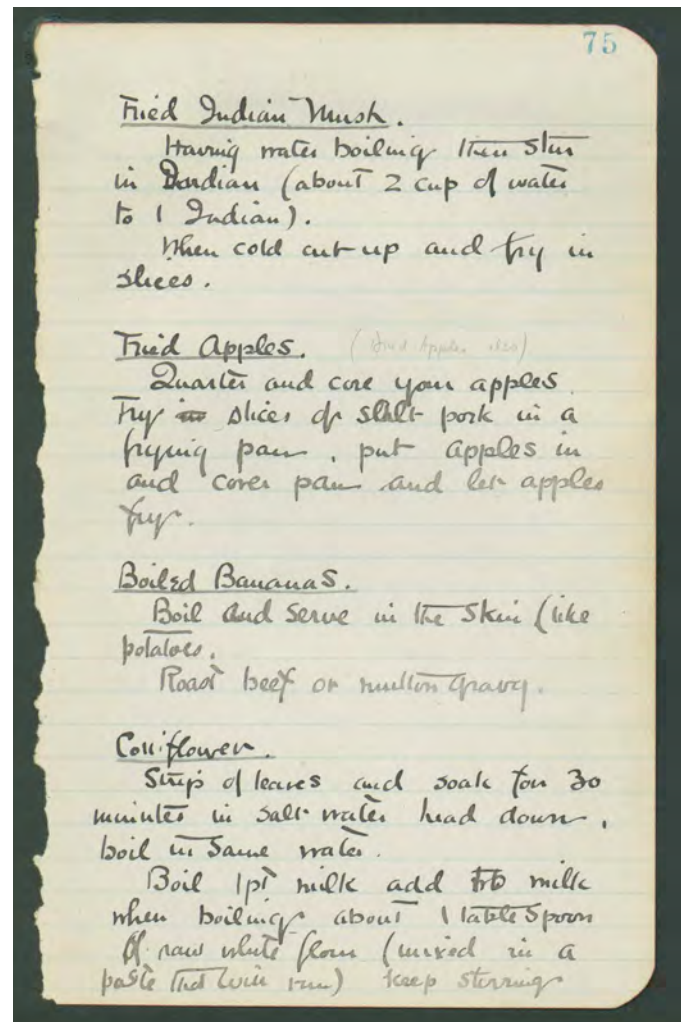 75
Fried Indian Mush.
Having water boiling then stir
in Indian (about 2 cup of water
to 1 Indian).
When cold cut up and fry in
slices.
Fried Apples. (Dried Apples also)
Quarter and core your apples.
Fry slices of salt pork in a
frying pan, put apples in
and cover pan and let apples
fry.
Boiled Bananas.
Boil and serve in the skin (like
potatoes.
Roast beef or mutton gravy.
Couiflower.
Strip of leaves and soak for 30
minutes in salt water head down,
boil in same water.
Boil 1pt milk add to milk
when boiling about 1 tablespoon
of raw white flour (mixed in a
paste that will run) keep stirring